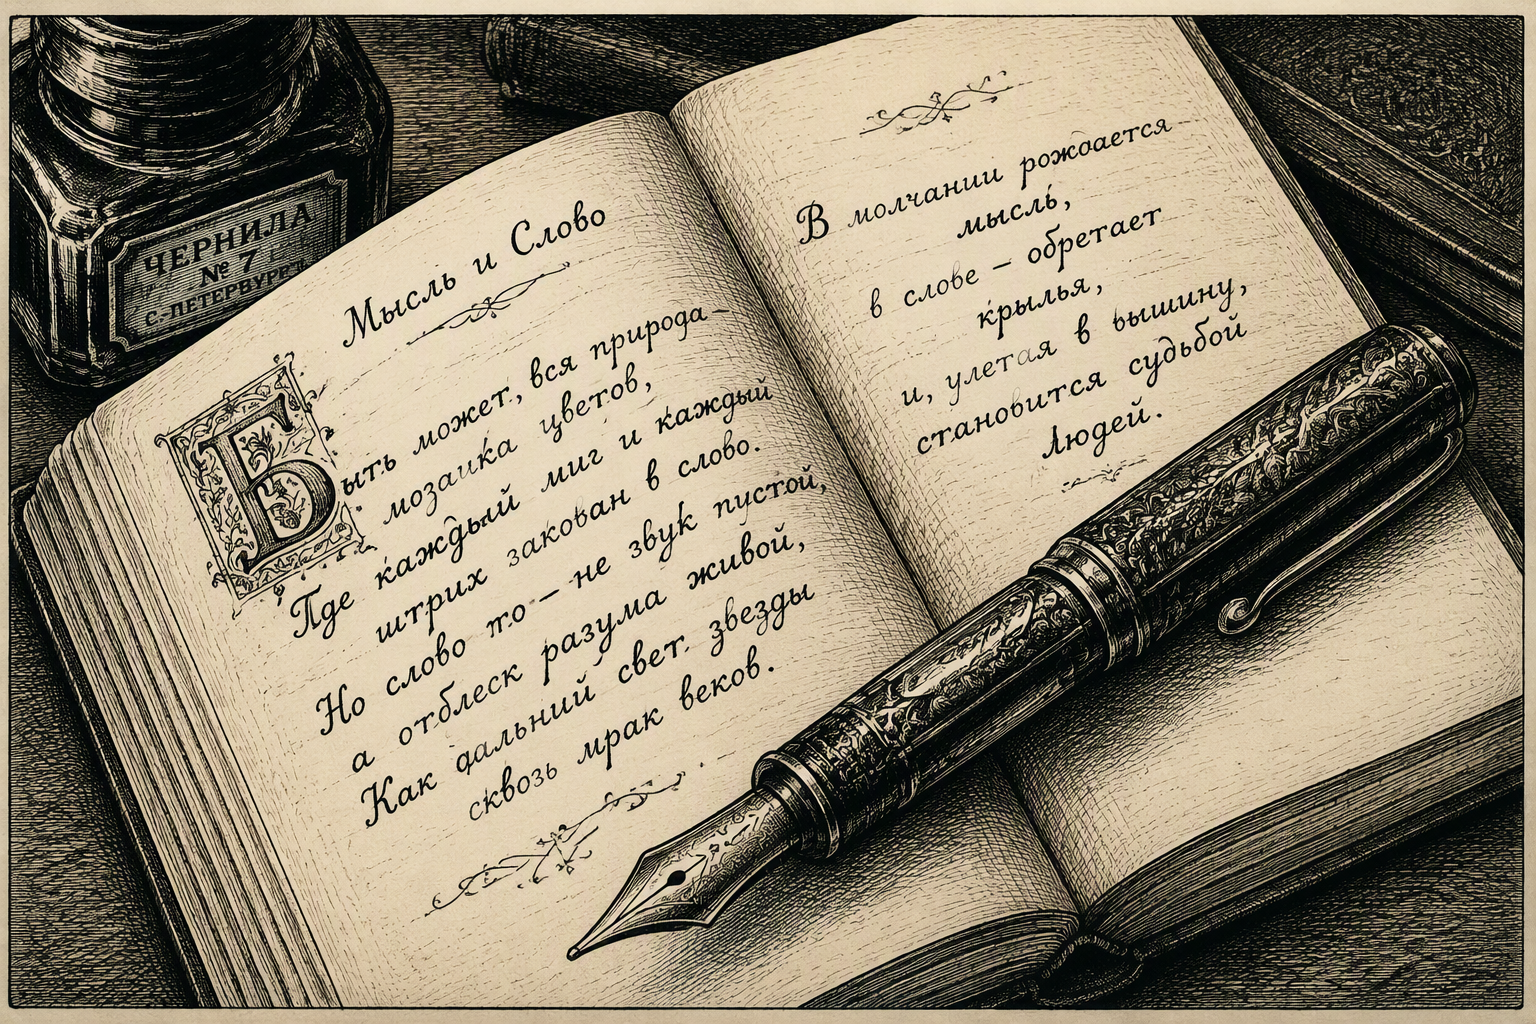 ЧЕРНИЛА
№ 7
С.-ПЕТЕРБУРГЪ
Мысль и Слово
Быть может, вся природа –
мозаика цветов,
Где каждый миг и каждый
штрих закован в слово.
Но слово то – не звук пустой,
а отблеск разума живой,
Как дальний свет звезды
сквозь мрак веков.
В молчании рождается
мысль,
в слове – обретает
крылья,
и, улетая в вышину,
становится судьбой
людей.